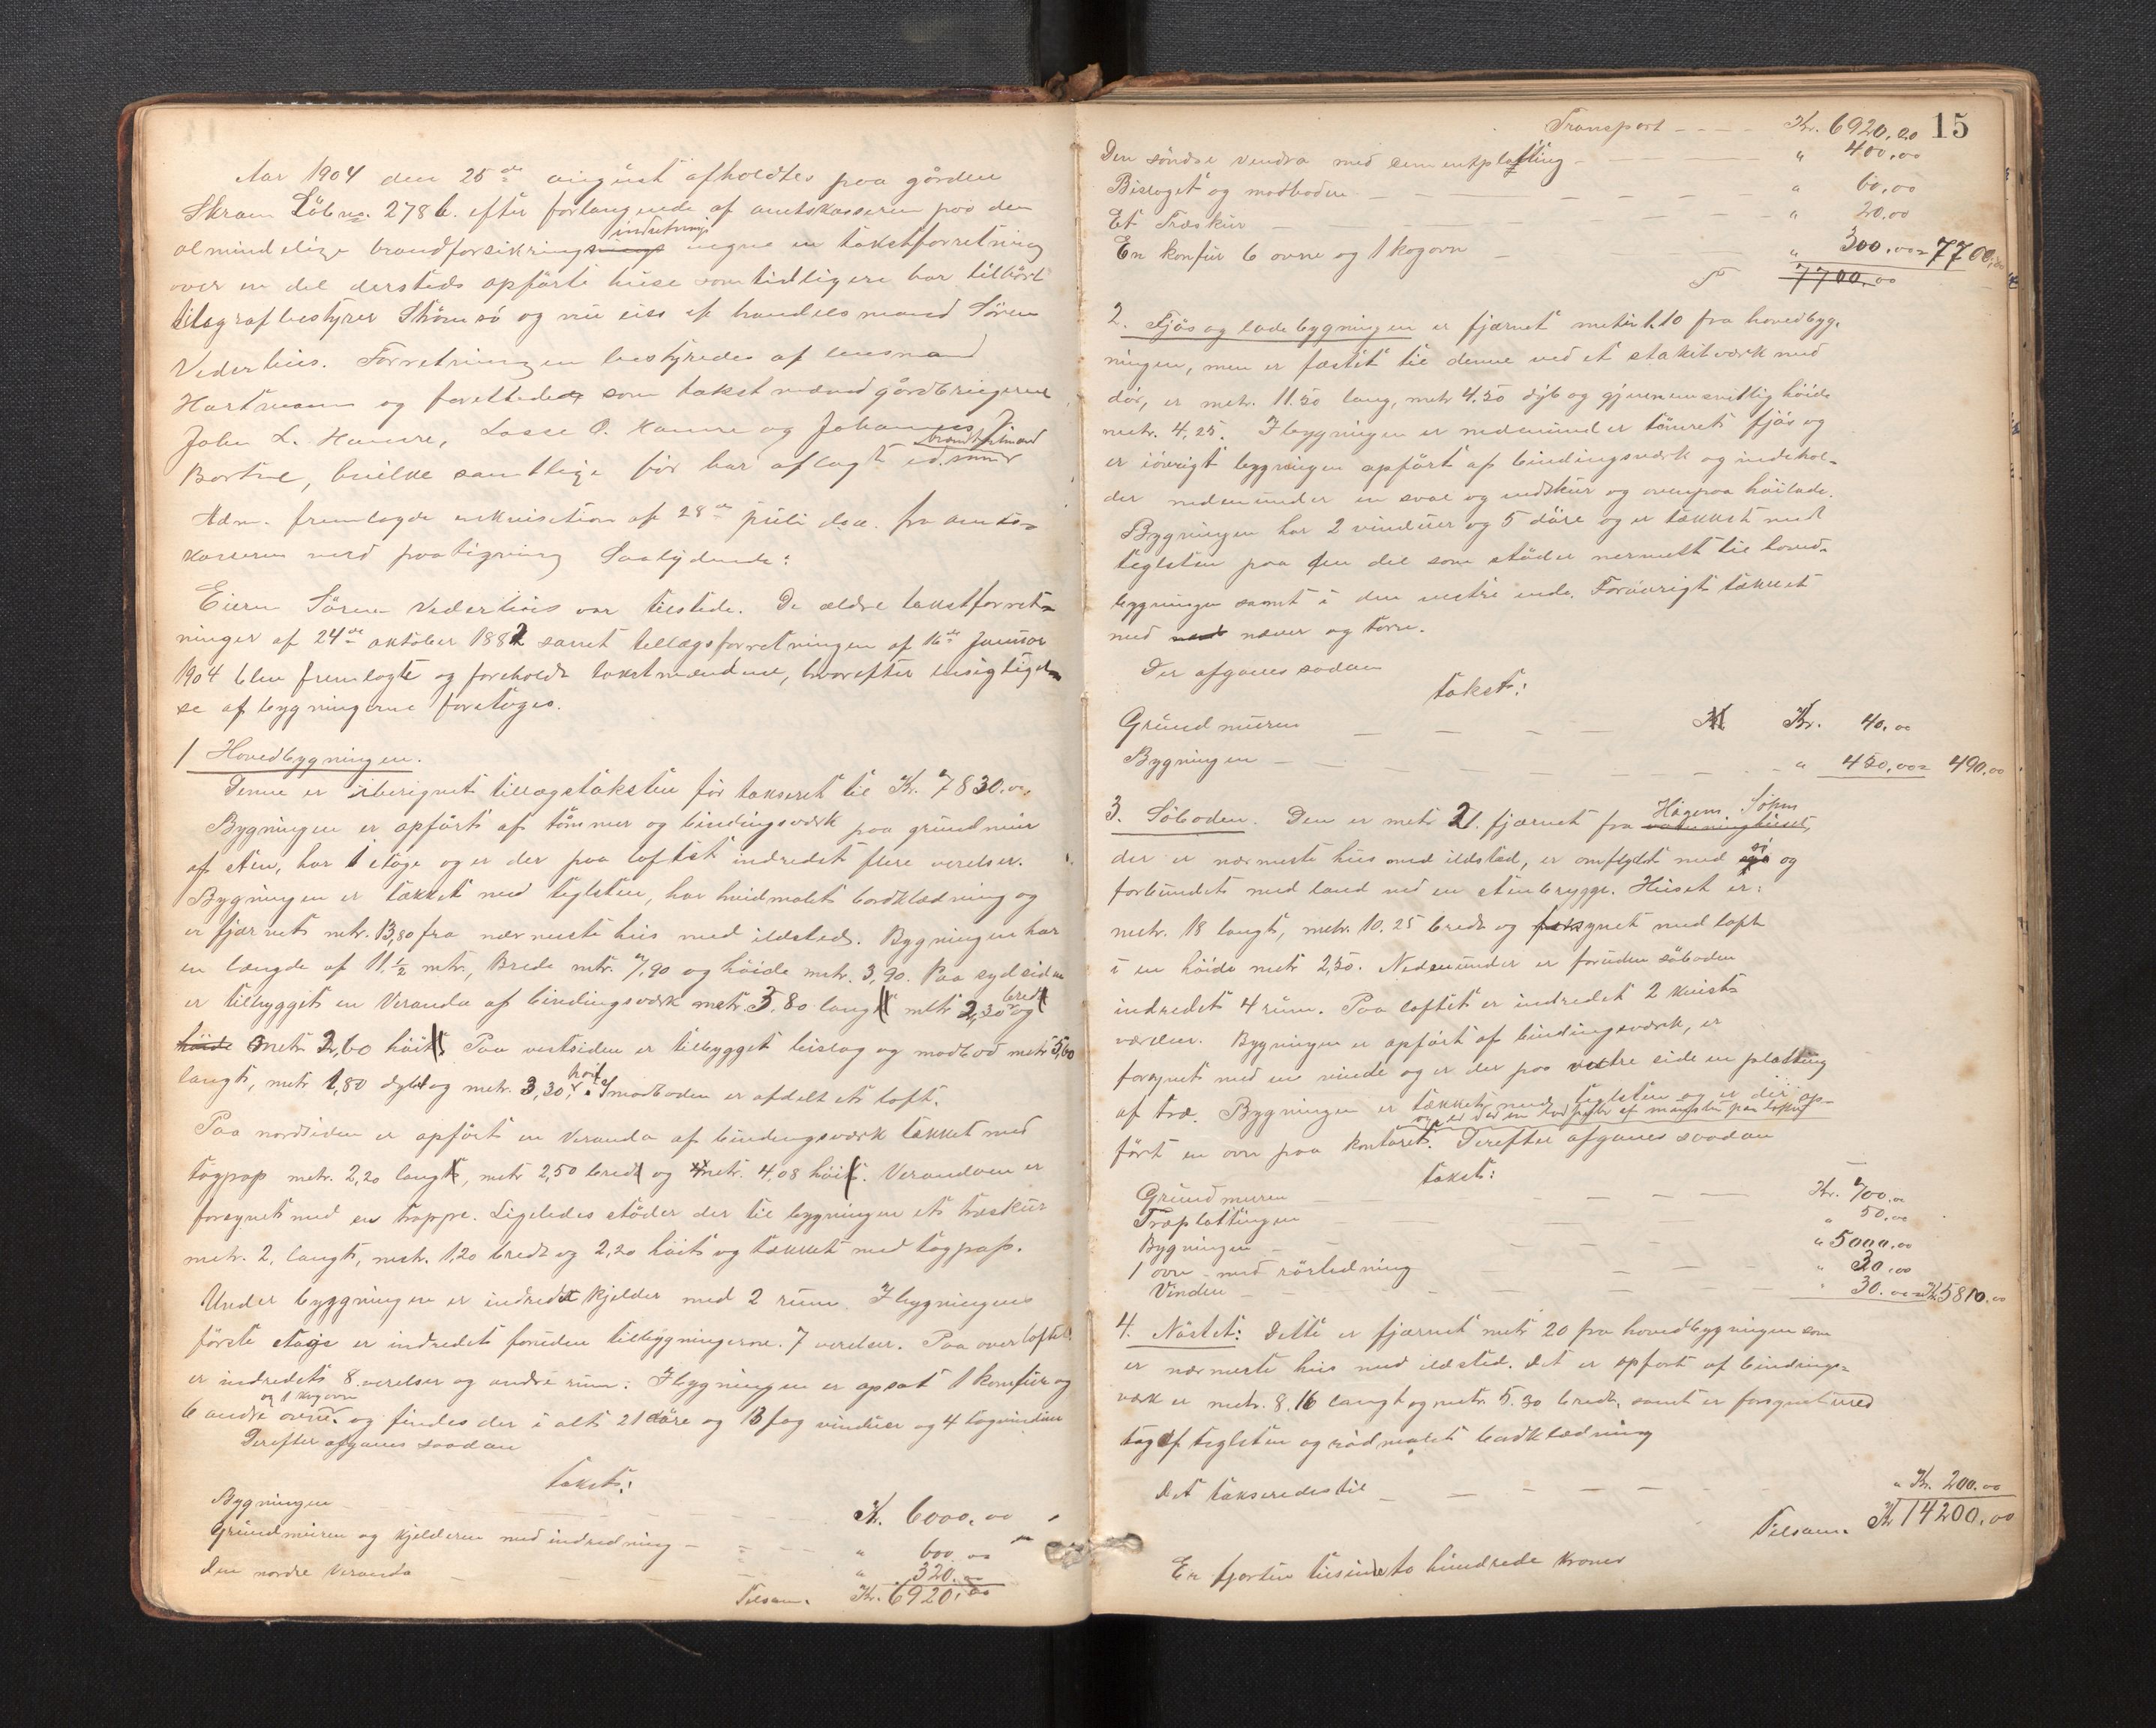 Aar 1904 den 25de august afholdtes paa gården
Skram Löbno. 278 b. efter forlangende af amtskasseren paa den
almindelige brandforsikrings indretnings vegne en takstforretning
over en del dersteds opförte huse som tidligere har tilhört
telegrafbestyrer Strömsö og nu eies af handelsmand Sören
Vederhus. Forretningen bestyredes af lensmand
Hartmann og forettedes som takstmænd gårdbrugerne
John L. Hamre, Lasse O. Hamre og Johannes J.
Bortne, hvilke samtlige för har aflagt ed. som brandskjönsmænd
Adm. fremlagde rekvisition af 28de juli d.a. fra amts-
kasseren med paategning Saalydende:
Eieren Sören Vederhus var tilstede. De ældre takstforret-
ninger af 24de oktober 1882 samt tillægsforretningen af 16de Januar
1904 blev fremlagte og foreholdt takstmændene, hvorefter besigtigel-
se af bygningerne foretoges.
1 Hovedbygningen.
Denne er iberegnet tillægstaksten för takseret til Kr. 7830.00
Bygningen er opfört af tömmer og bindingsværk paa grundmur
af sten, har 1 etage og er der paa loftet indredet flere verelser.
Bygningen er tækket med teglsten, har hvidmalet bordklædning og
er fjærnet mtr. 13,80 fra nærmeste hus med ildsted. Bygningen har
en længde af 11 1/2 mtr., Brede mtr. 7,90 og höide mtr. 3,90. Paa sydsiden
er tilbygget en Veranda af bindingsværk metr. 3.80 lang mtr 2,30 bred og
höide metr 2,60 höi. Paa vestsiden er tilbygget bislag og madbod metr 5,60
langt, metr 1,80 dybt og metr. 3,30 höit. I madboden er afdelt et loft.
Paa nordsiden er opfört en Veranda af bindingsværk tækket med
tagpap metr. 2,20 lang, metr 2,50 bred og metr. 4,08 höi. Verandaen er
forsynet med en trappe. Ligeledes stöder der til bygningen et træskur
metr. 2, langt, metr. 1,20 bredt og 2,20 höit og tækket med tagpap.
Under bygningen er indredet kjelder med 2 rum. I bygningens
förste etage er indredet foruden tilbygningerne 7 verelser. Paa overloftet
er indredet 8 verelser og andre rum. I bygningen er opsat 1 komfur og
6 andre ovne og 1 kogovn og findes der i alt 21 döre og 13 fag vinduer og 4 tagvinduer
Derefter afgaves saadan
takst:
Bygningen Kr. 6000.00
Grundmuren og kjelderen med indredning " 600.00
Den nordre Veranda " 320.00
Tilsam. Kr. 6920.00
15
Transport Kr. 6920.00
Den söndre veranda med cementplatting " 400.00
Bislaget og madboden " 60.00
Et Træskur " 20.00
En komfur 6 ovne og 1 kogovn " 300.00 = 7700.00
7700.00
2. Fjös og ladebygningen er fjærnet meter 1.10 fra hovedbyg-
ningen, men er fæstet til denne ved et stakitværk med
dör, er metr. 11.50 lang, metr 4.50 dyb og gjennemsnitlig höide
metr. 4,25. I bygningen er nedenunder tömret fjös og
er iövrigt bygningen opfört af bindingsværk og indehol-
der nedenunder en sval og vedskur og ovenpaa höilade.
Bygningen har 2 vinduer og 5 döre og er tækket med
teglsten paa den del som stöder nermest til hoved-
bygningen samt i den vestre ende. Forövrigt tækket
med næver og torv.
Der afgaves sadan
takst:
Grundmuren Kr. 40.00
Bygningen " 450.00 = 490.00
3. Söboden. Den er metr 21. fjærnet fra Hågens Söhus
der er nærmeste hus med ildsted, er omflydt med sö og
forbundet med land ved en stenbrygge. Huset er:
metr. 18 langt, metr. 10.25 bredt og forsynet med loft
i en höide metr 2,50. Nedenunder er foruden söboden
indredet 4 rum. Paa loftet er indredet 2 kvist-
værelser. Bygningen er opfört af bindingsværk, er
forsynet med en vinde og er der paa vestre side en platting
af træ. Bygningen er tækket med teglsten og er der op-
fört en ovn paa kontoret. Derefter afgaves saadan
takst:
Grundmuren Kr. 700.00
Træplattingen " 50.00
Bygningen " 5000.00
1 ovn med rörledning " 30.00
Vinden " 30.00 = Kr 5810.00
4. Nöstet: Dette er fjærnet metr 20 fra hovedbygningen som
er nærmeste hus med ildsted. Det er opfört af bindings-
værk er metr. 8.16 langt og metr 5.30 bredt, samt er forsynet med
tag af teglsten og rödmalet bordklædning
Det takseredes til " Kr. 200.00
Tilsam. Kr 14200.00
Er fjorten tusinde to hundrede kroner